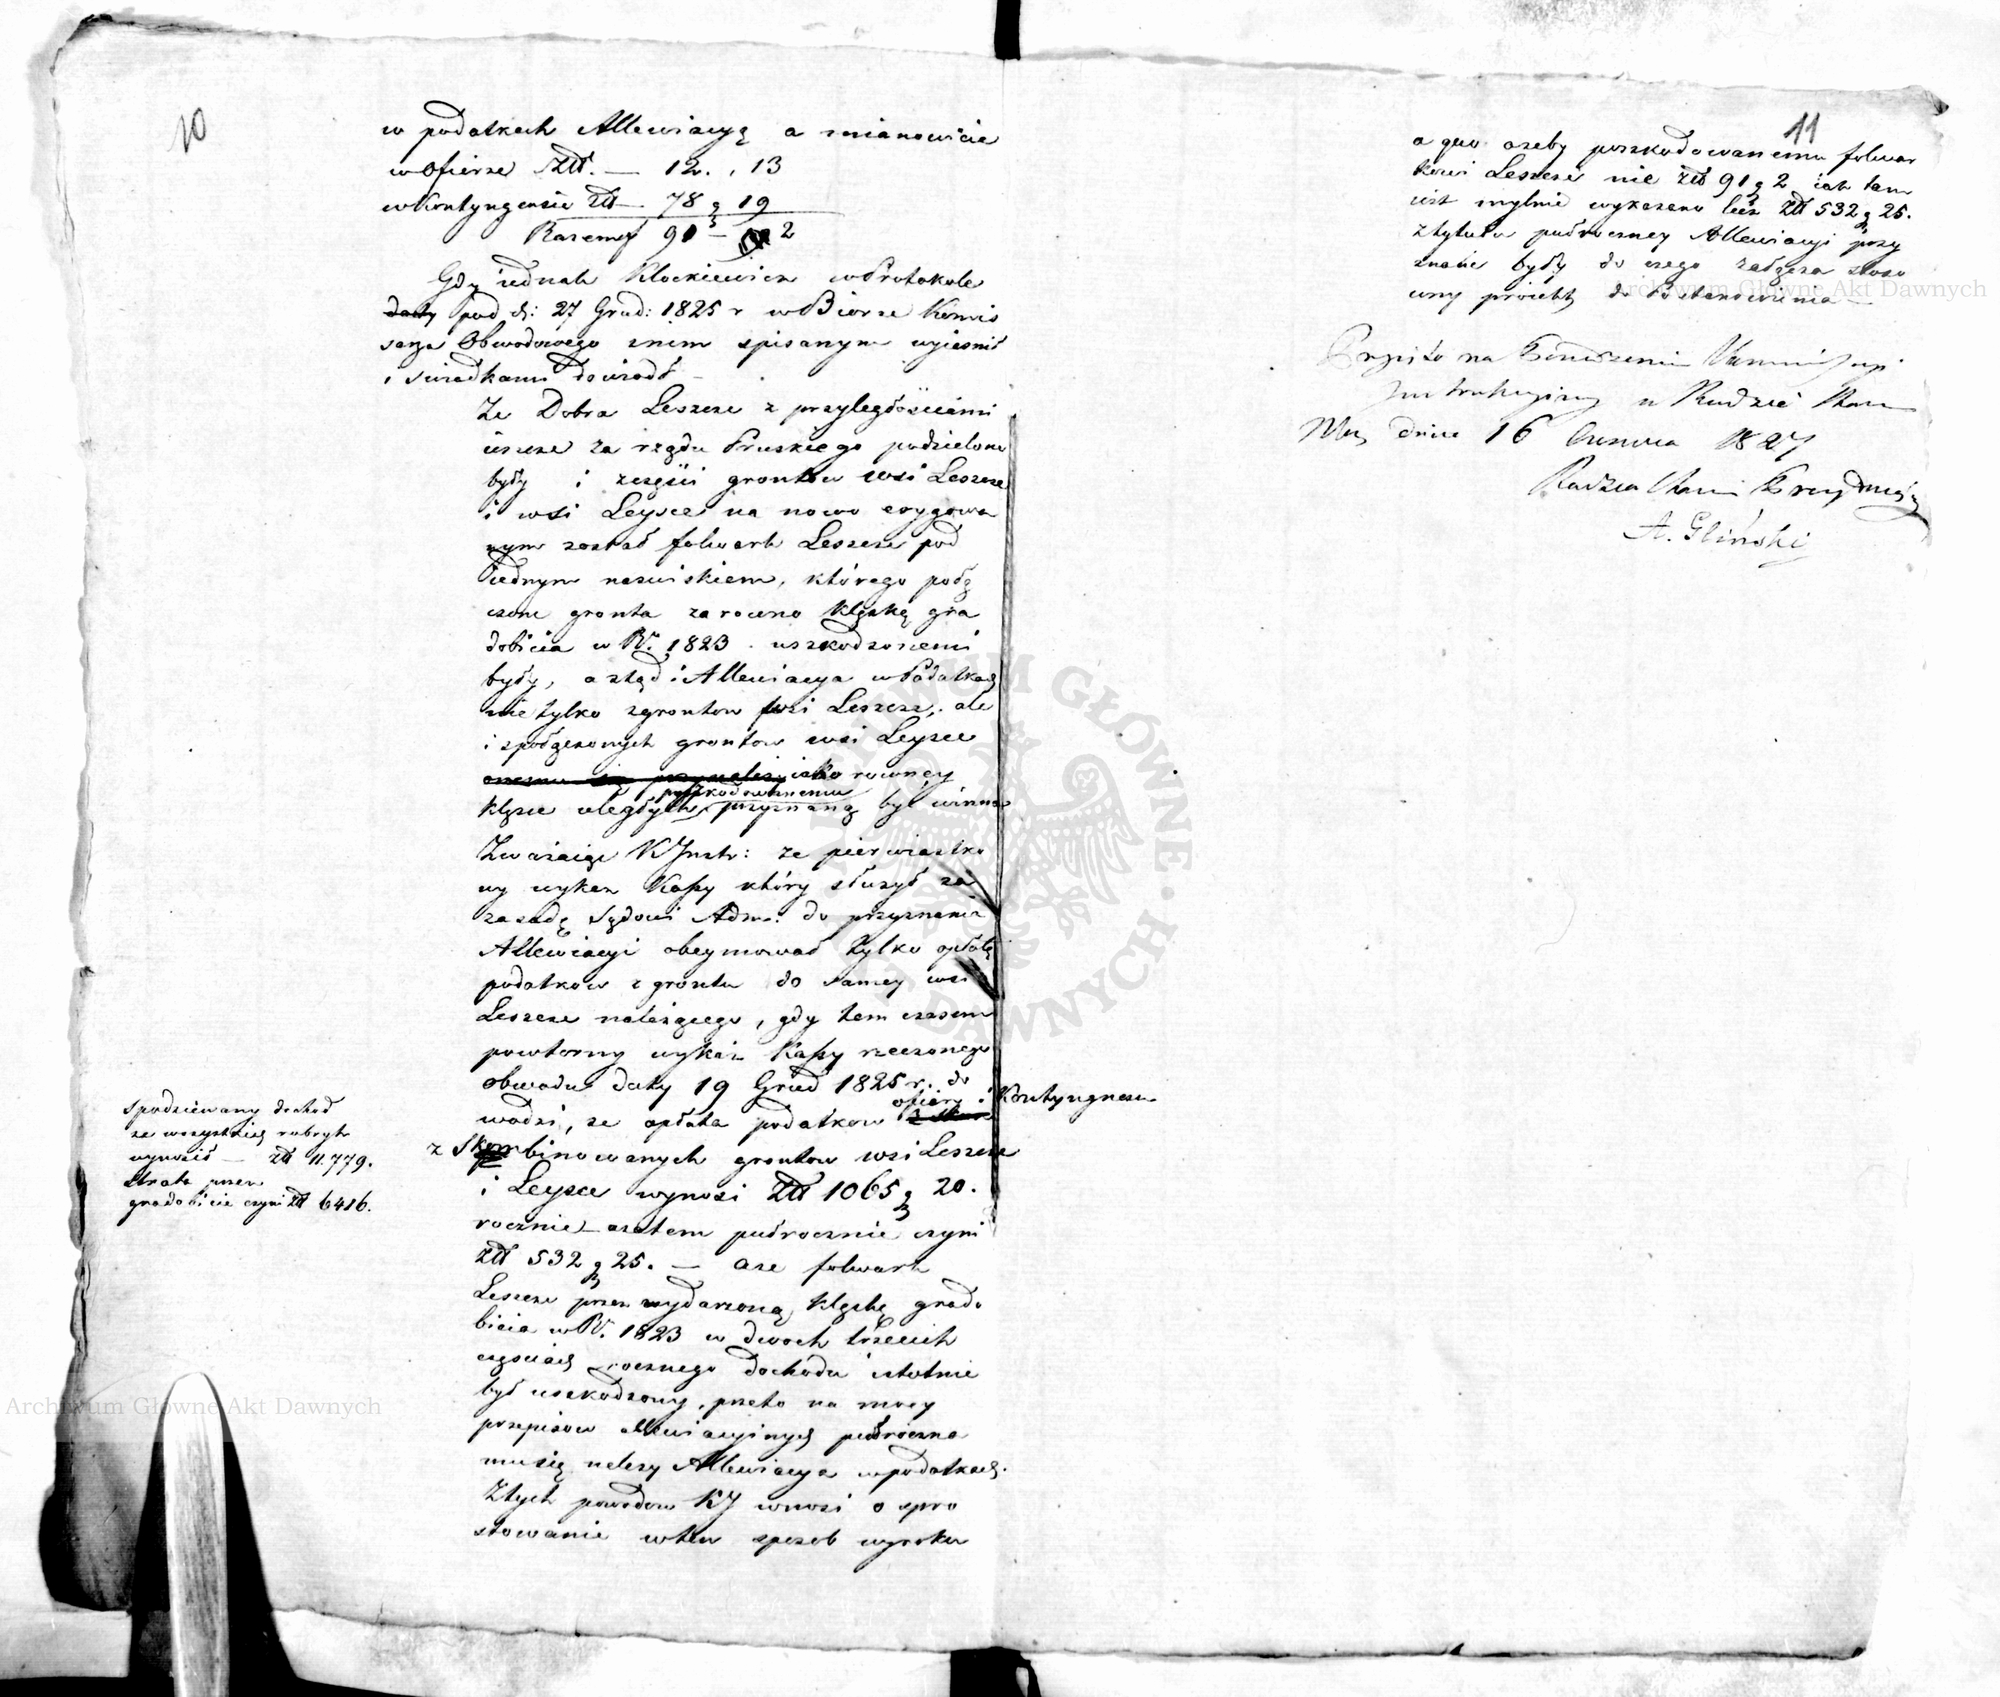 10
w podatkach Allewiacyą a mianowicie
w Ofierze Złł. — 12. , 13
w Kontyngensie Złł — 78 g 19
Razem 90 — 2
Gdy iednak Klockiewicz w Protokole
daty pod d: 27 Grud: 1825 r w Biorze Komis
sarza Obwodowego z nim spisanym wyiasnił
i swiadkami dowiodł —
Ze Dobra Leszcze z przyległościami
iescze za rządu Pruskiego podzielone
były i z części grontów wsi Leszcze
i wsi Leysce na nowo erygowa
nym został folwark Leszcze pod
iednym nazwiskiem, którego połą
czone gronta zarowno klęską gra
dobicia w R. 1823 uszkodzonemi
były, a ztąd i Allewiacya w Podatkach
nie tylko z grontow wsi Leszcze, ale
i z połączonych grontow wsi Leysce
onemu się przynależy iako rowney
poszkodowanemu
klęsce uległych przyznaną być winna
Zważaiąc K Instr: że pierwiastko
wy wykaz Kassy który służył za
zasadę Sądowi Adm: do przyznania
Allewiacyi obeymował tylko opłatę
podatkow z grontu do samey wsi
Leszcze należącego, gdy tem czasem
powtorny wykaz Kassy rzeczonego
obwodu daty 19 Grud 1825 r. do
ofiary i Kontyngnesu
wodzi, że opłata podatkow
z Skombinowanych grontow wsi Leszcze
i Leysce wynosi Złł 1065 g 20.
rocznie — a zatem pułrocznie czyni
Złł 532 g 25. — a że folwark
Leszcze przez wydarzoną klęskę grado
bicia w R. 1823 w dwoch trzecich
częściach rocznego dochodu istotnie
był uszkodzony, przeto na mocy
przepisow Allewiacyinych pułroczna
mu się należy Allewiacya w podatkach.
Z tych powodow KJ wnosi o spro
stowanie w ten sposob wyroku
spodziewany dochod
ze wszystkich rubryk
wynosił — złł 11.779.
strata przez
gradobicie czyni złł 6416.
11
a quo ażeby poszkodowanemu folwar
kowi Leszcze nie złł 91 g 2 iak tam
iest mylnie wykazano lecz złł 532 g 25.
z tytułu pułroczney Allewiacyi przy
znane były do czego załącza stoso
wny proiekt do Postanowienia —
Przyięto na Posiedzeniu Kommissyi
Instrukcyiney w Radzie Stanu
Dnia 16 Czerwca 1827
Radca Stanu Prezyduiący
A. Gliński
Archiwum Główne Akt Dawnych
Archiwum Główne Akt Dawnych
ARCHIWUM GŁÓWNE AKT DAWNYCH